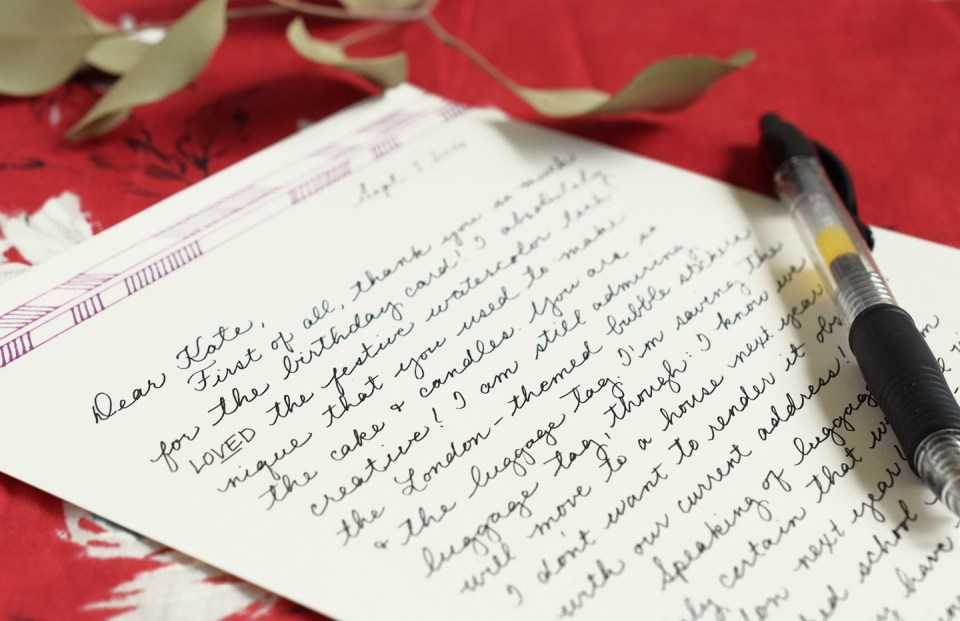 Sept.
Dear Kate,
First of all, thank you so much
for the birthday card! I absolutely
LOVED the festive watercolor tech
nique that you used to make
the cake & candles. You are so
creative! I am still admiring
the London-themed bubble stickers
& the luggage tag. I'm saving the
luggage tag, though: I know we
will move to a house next year
I don't want to render it obs
with our current address!
Speaking of luggag
ly certain that w
don next year!
ed school
have